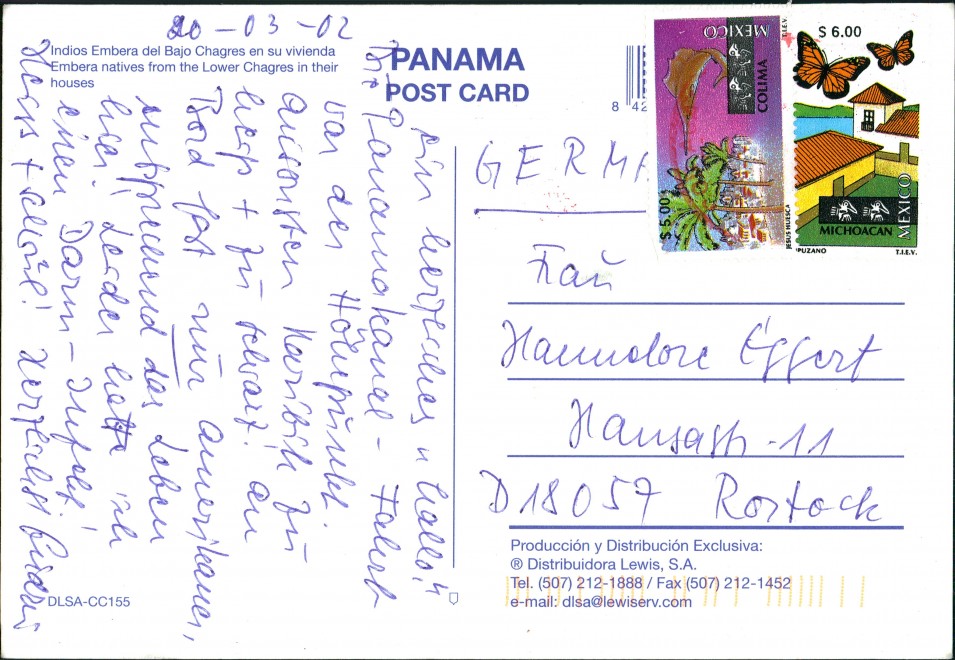 20-03-02
Indios Embera del Bajo Chagres en su vivienda
Embera natives from the Lower Chagres in their
houses
PANAMA
POST CARD
8 42
MEXICO
COLIMA
$ 5.00
JESUS HUESCA
T.I.E.V.
$ 6.00
MICHOACAN
MEXICO
PUZANO
T.I.E.V.
Ein herzliches "Hallo"!
Die Panamakanal-Fahrt
war der Höhepunkt.
Ansonsten Karibik zu
heiß + zu schwarz! An
Bord fast nur Amerikaner,
entsprechend das Leben
hier. Leider hatte ich
einen Darm-Infekt!
Herzlichst
GERMA
Frau
Hannelore Eggert
Hansastr. 11
D 18057 Rostock
Producción y Distribución Exclusiva:
® Distribuidora Lewis, S.A.
Tel. (507) 212-1888 / Fax (507) 212-1452
e-mail: dlsa@lewiserv.com
DLSA-CC155